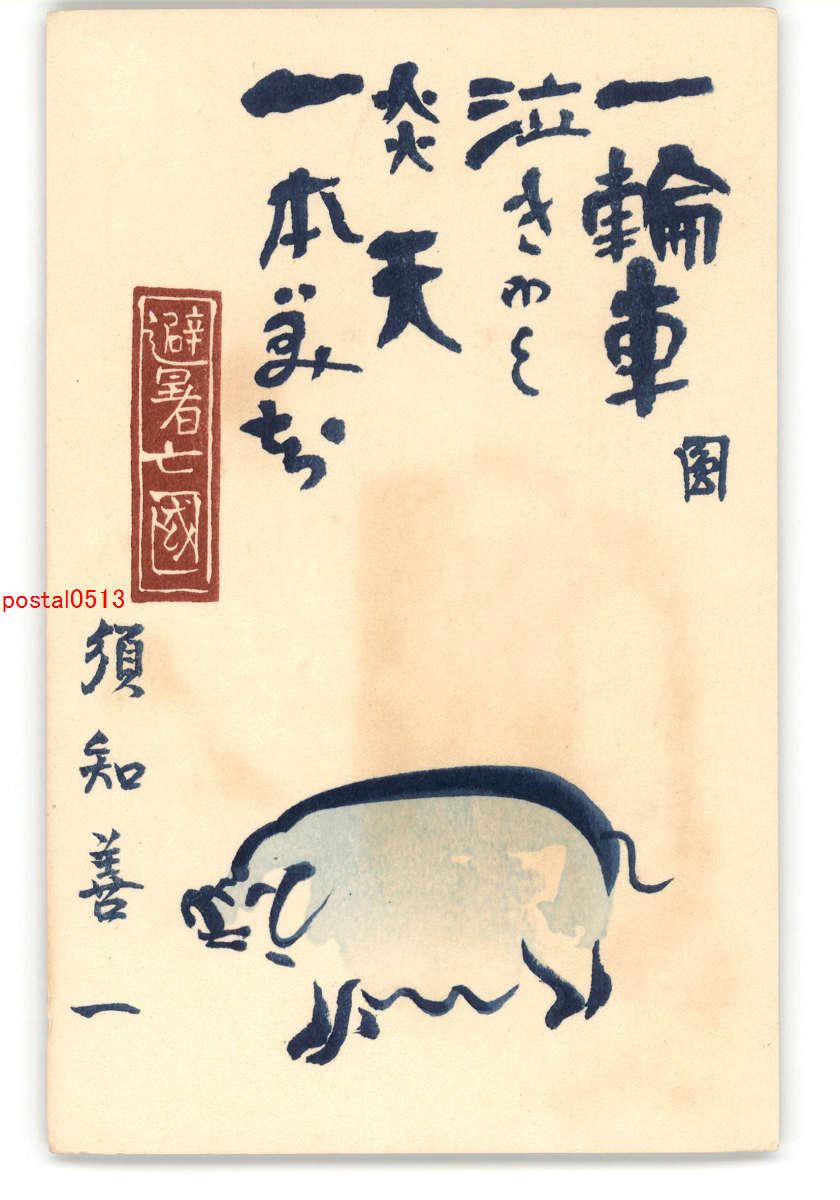 一輪車
泣きゆく
炎天
一本美知
圀
避暑亡國
須知善一
postal0513